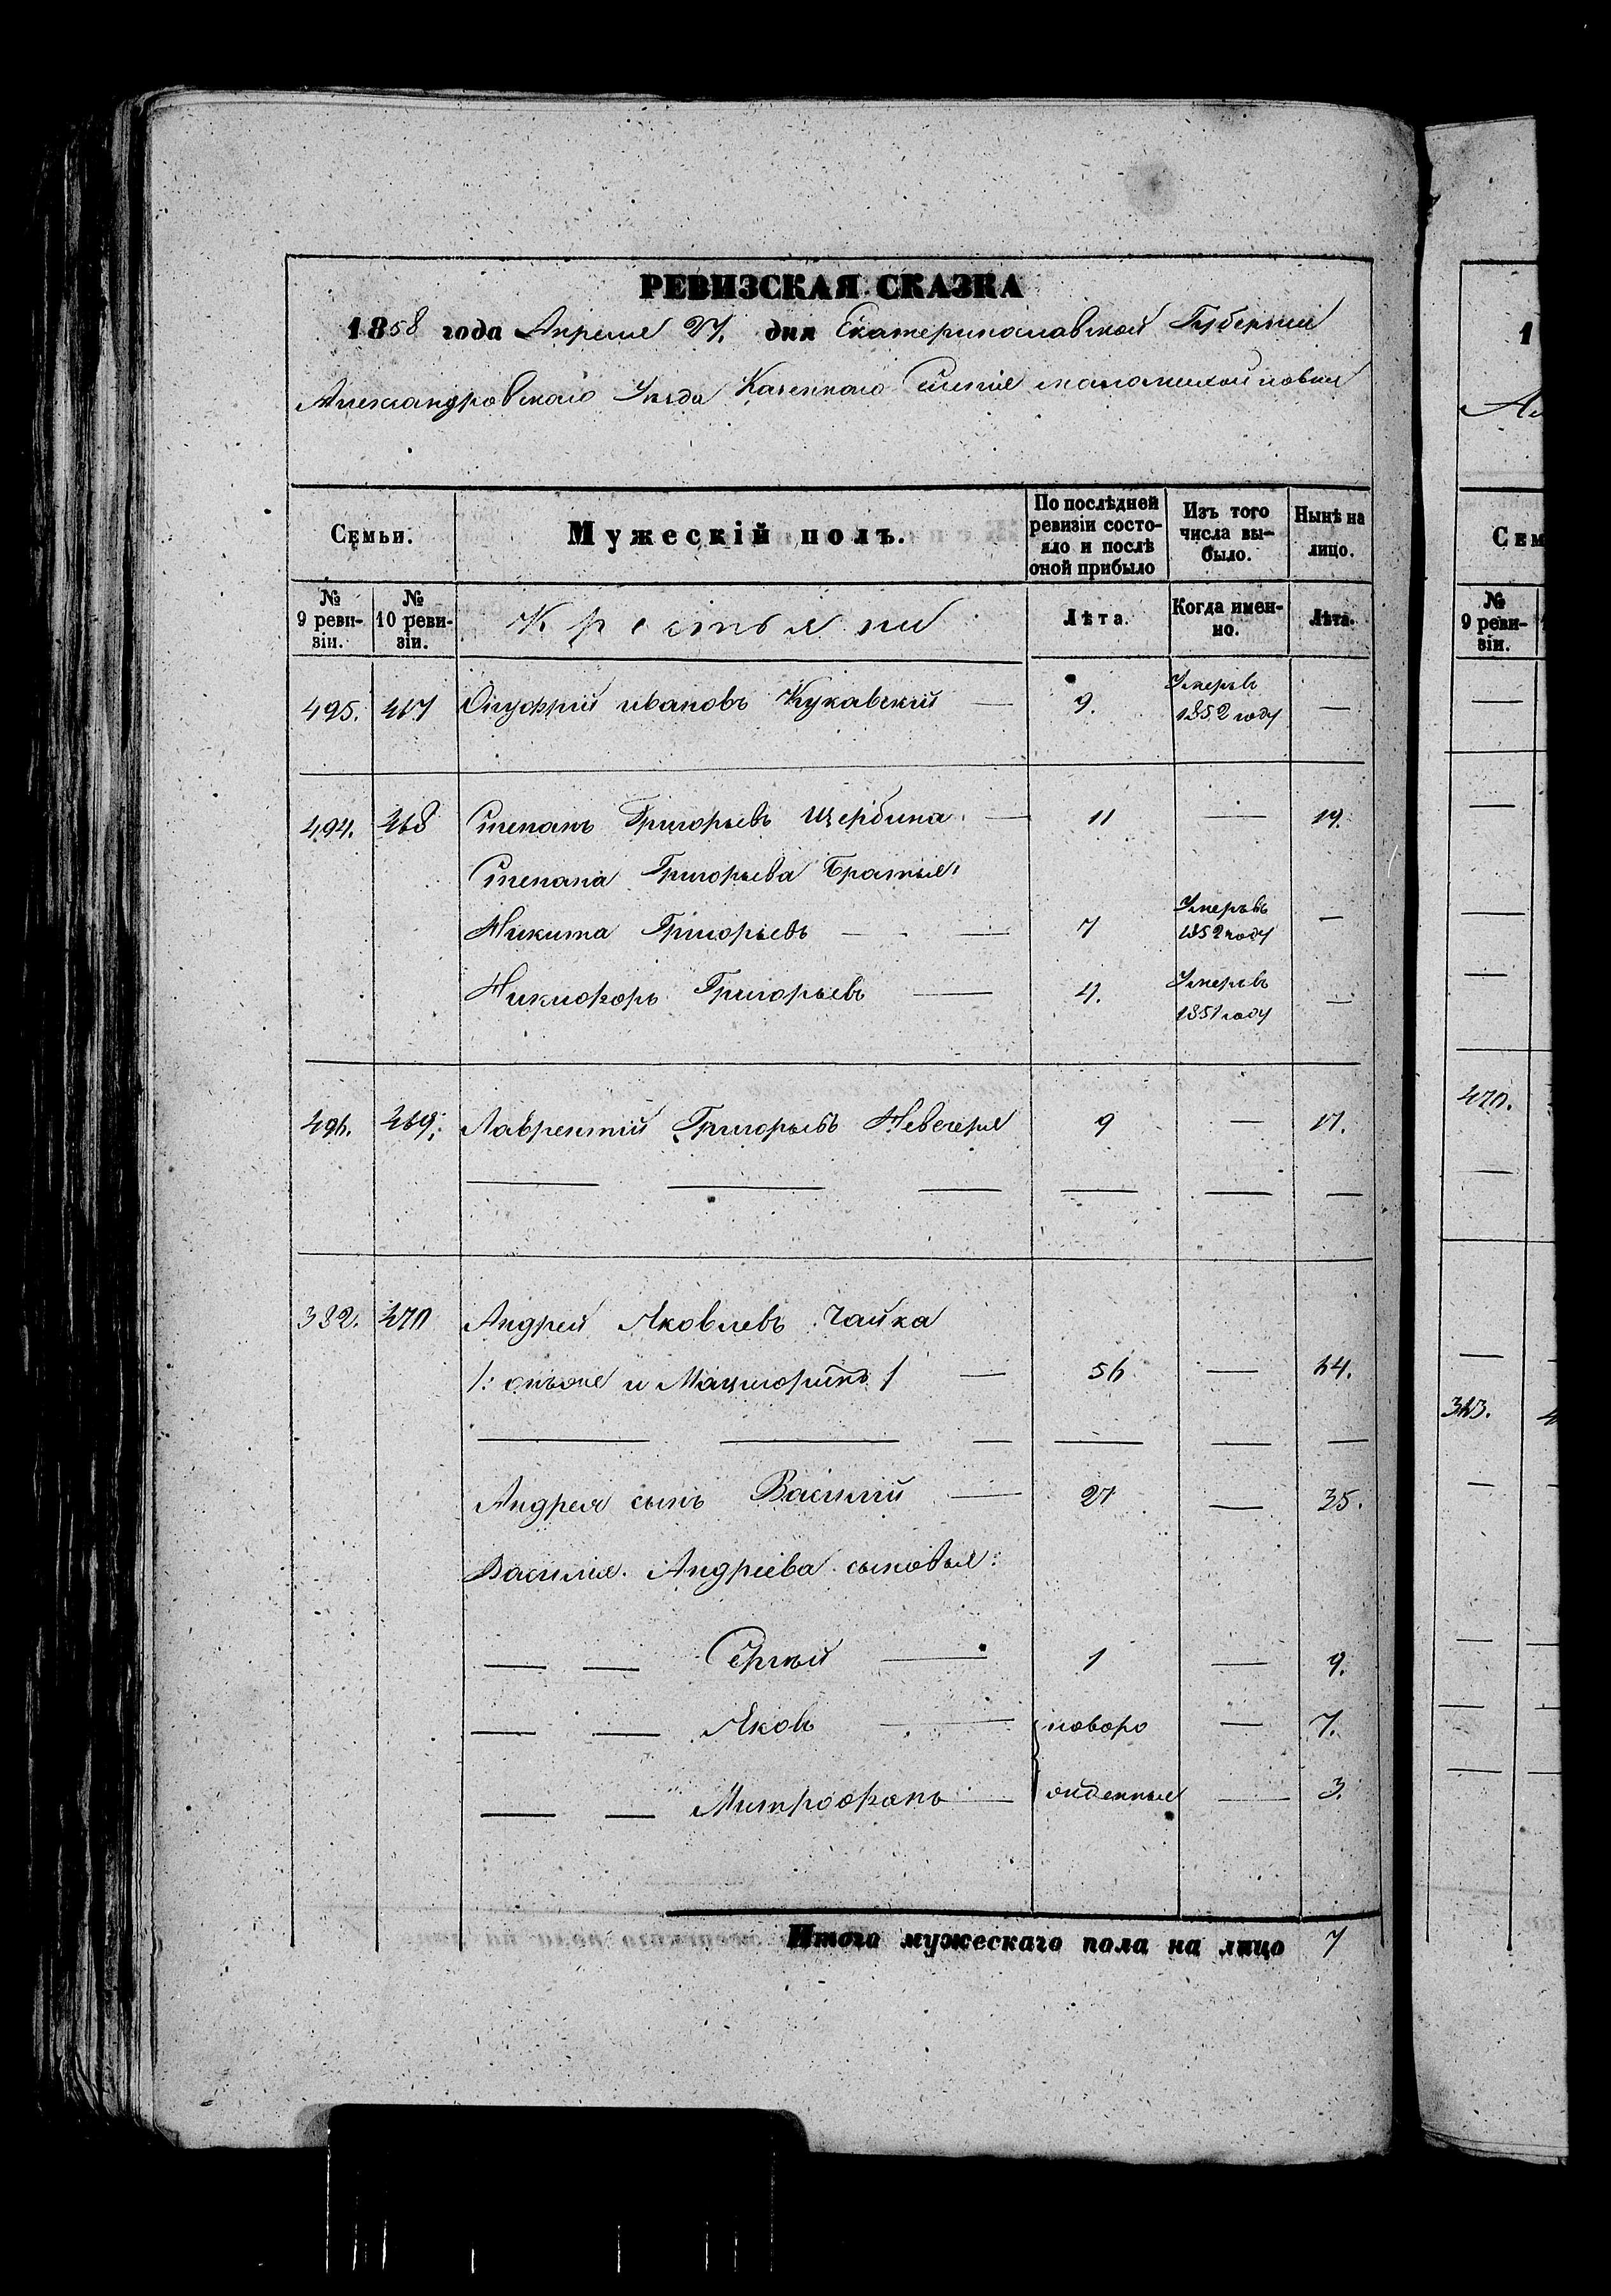 РЕВИЗСКАЯ СКАЗКА
1858 года Апреля 27. дня Екатеринославской Губерніи
Александровскаго Уѣзда Казеннаго Селенія маломихайловки
Семьи. Мужескій полъ. По послѣдней ревизіи состояло и послѣ оной прибыло Изъ того числа выбыло. Нынѣ на лицо.
№ 9 ревизіи. № 10 ревизіи. Крестьяне Лѣта. Когда именно. Лѣта.
495. 467 Онуфрій ивановъ Кукавскій — 9. Умеръ въ 1852 году —
494. 468 Степанъ Григорьевъ Щербина — 11 — 19.
Степана Григорьева Братья:
Никита Григорьевъ — — 7 Умеръ въ 1852 году —
Никифоръ Григорьевъ — 4. Умеръ въ 1851 году —
496. 469. Лаврентій Григорьевъ Невечеря 9 — 17.
— — — — — —
382. 470 Андрей Яковлевъ Чайка
/: онъ же и /
— 56 — 64.
— — — — — —
Андрея сынъ Василій — 27 — 35.
Василія Андреева сыновья:
— — Сергѣй — 1 — 9.
— — Яковъ — новоро — 7.
— — Митрофанъ — жденные — 3.
Итого мужескаго пола на лицо 7
1
Ал
Сем
№ 9 ревизіи.
470.